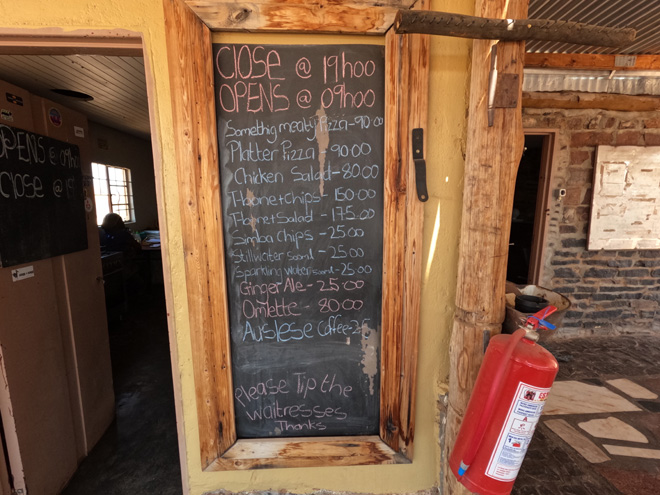 CLOSE @ 19h00
OPENS @ 09h00
Somethig meaty Pizza-90.00
Platter Pizza 90.00
Chicken Salad-80.00
T-bone+chips-150.00
T-bone+Salad-175.00
Simba Chips-25.00
Still water 500ml-25.00
Sparkling water 500ml-25.00
Ginger Ale-25.00
Omlette-80.00
Auslese Coffee-
Please Tip the
waitresses
Thanks
OPENS @ 09h
CLOSE @ 19